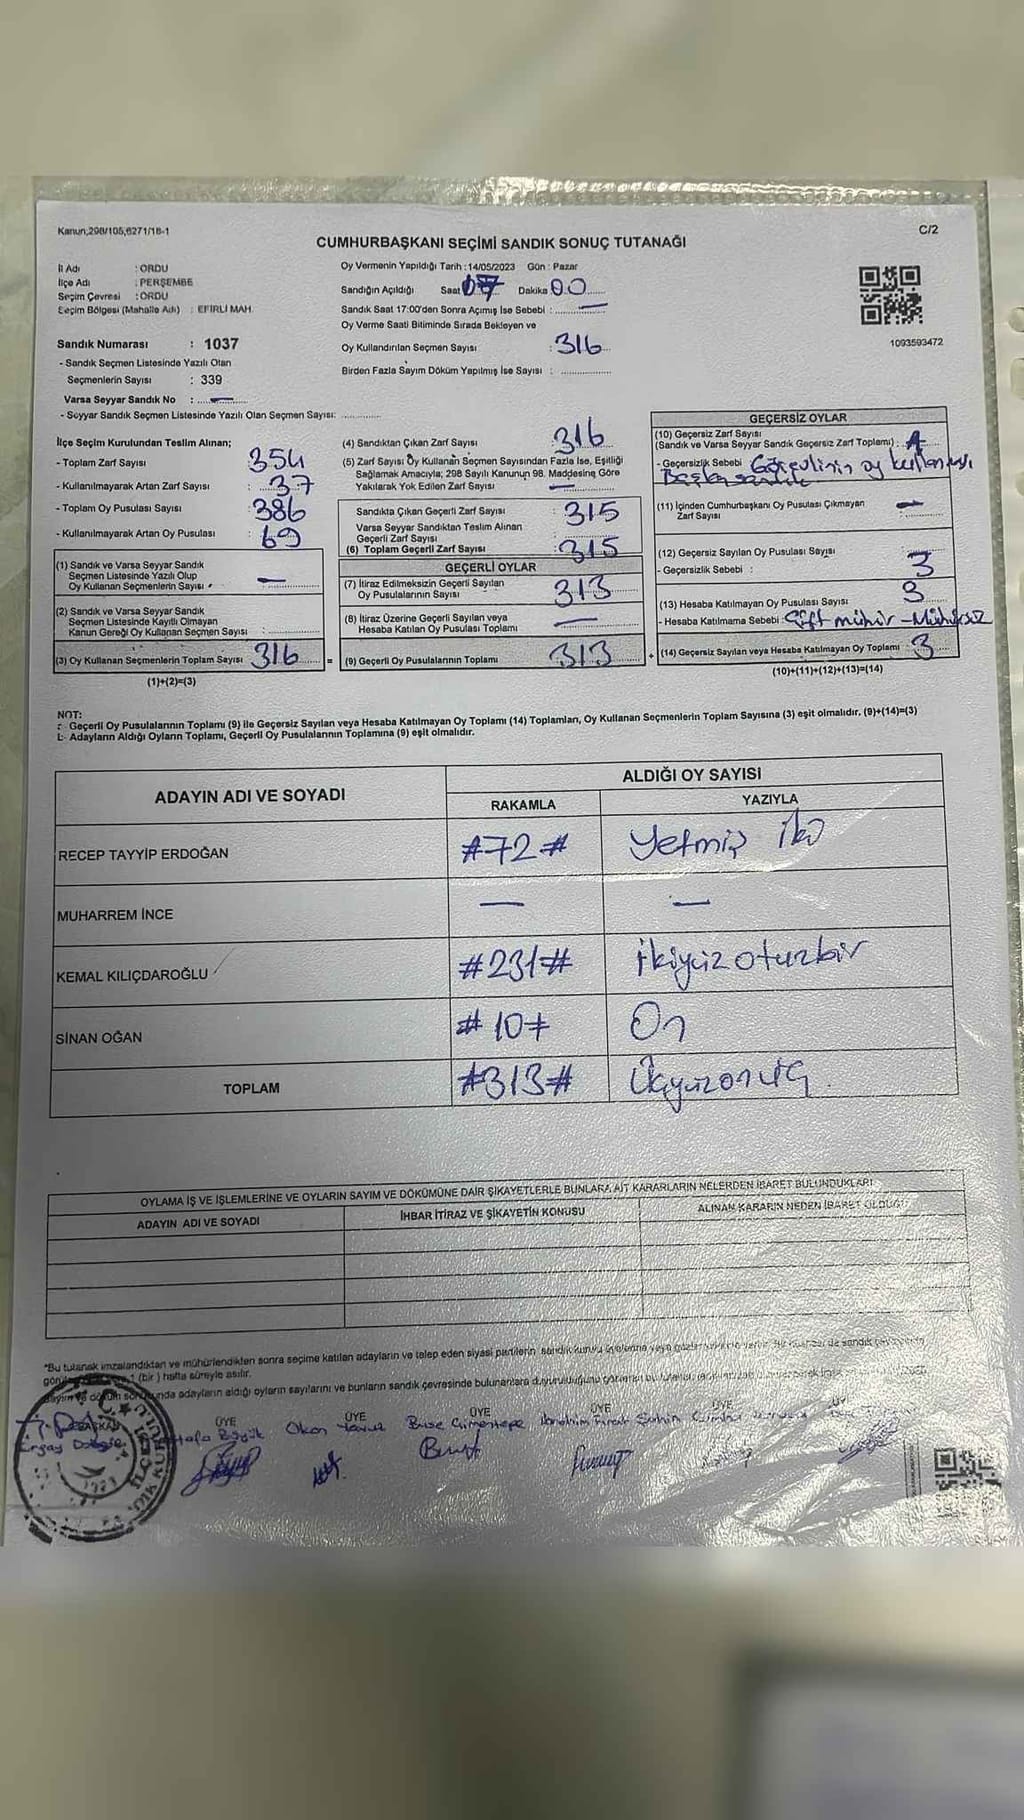 Kanun;298/105,6271/18-1
C/2
CUMHURBAŞKANI SEÇİMİ SANDIK SONUÇ TUTANAĞI
İl Adı : ORDU
İlçe Adı : PERŞEMBE
Seçim Çevresi : ORDU
Seçim Bölgesi (Mahalle Adı) : EFİRLİ MAH.
Sandık Numarası : 1037
- Sandık Seçmen Listesinde Yazılı Olan
Seçmenlerin Sayısı : 339
Varsa Seyyar Sandık No : —
- Seyyar Sandık Seçmen Listesinde Yazılı Olan Seçmen Sayısı: ............
Oy Vermenin Yapıldığı Tarih : 14/05/2023 Gün : Pazar
Sandığın Açıldığı Saat Dakika 00
Sandık Saat 17:00'den Sonra Açımış İse Sebebi : —
Oy Verme Saati Bitiminde Sırada Bekleyen ve
Oy Kullandırılan Seçmen Sayısı : 316
Birden Fazla Sayım Döküm Yapılmış İse Sayısı : ............
1093593472
İlçe Seçim Kurulundan Teslim Alınan;
- Toplam Zarf Sayısı : 354
- Kullanılmayarak Artan Zarf Sayısı : 37
- Toplam Oy Pusulası Sayısı : 386
- Kullanılmayarak Artan Oy Pusulası : 69
(1) Sandık ve Varsa Seyyar Sandık
Seçmen Listesinde Yazılı Olup
Oy Kullanan Seçmenlerin Sayısı : —
(2) Sandık ve Varsa Seyyar Sandık
Seçmen Listesinde Kayıtlı Olmayan
Kanun Gereği Oy Kullanan Seçmen Sayısı : ............
(3) Oy Kullanan Seçmenlerin Toplam Sayısı 316 =
(1)+(2)=(3)
(4) Sandıktan Çıkan Zarf Sayısı : 316
(5) Zarf Sayısı Oy Kullanan Seçmen Sayısından Fazla İse, Eşitliği
Sağlamak Amacıyla; 298 Sayılı Kanunun 98. Maddesine Göre
Yakılarak Yok Edilen Zarf Sayısı : —
Sandıkta Çıkan Geçerli Zarf Sayısı : 315
Varsa Seyyar Sandıktan Teslim Alınan
Geçerli Zarf Sayısı
(6) Toplam Geçerli Zarf Sayısı : 315
GEÇERLİ OYLAR
(7) İtiraz Edilmeksizin Geçerli Sayılan
Oy Pusulalarının Sayısı : 313
(8) İtiraz Üzerine Geçerli Sayılan veya
Hesaba Katılan Oy Pusulası Toplamı : —
(9) Geçerli Oy Pusulalarının Toplamı : 313 +
GEÇERSİZ OYLAR
(10) Geçersiz Zarf Sayısı
(Sandık ve Varsa Seyyar Sandık Geçersiz Zarf Toplamı) :
- Geçersizlik Sebebi Görevlinin oy kullanması
Başka sandık
(11) İçinden Cumhurbaşkanı Oy Pusulası Çıkmayan
Zarf Sayısı : —
(12) Geçersiz Sayılan Oy Pusulası Sayısı : 3
- Geçersizlik Sebebi :
(13) Hesaba Katılmayan Oy Pusulası Sayısı : 3
- Hesaba Katılmama Sebebi : Çift mühür - Mühürsüz
(14) Geçersiz Sayılan veya Hesaba Katılmayan Oy Toplamı : 3
(10)+(11)+(12)+(13)=(14)
NOT:
Geçerli Oy Pusulalarının Toplamı (9) ile Geçersiz Sayılan veya Hesaba Katılmayan Oy Toplamı (14) Toplamları, Oy Kullanan Seçmenlerin Toplam Sayısına (3) eşit olmalıdır. (9)+(14)=(3)
Adayların Aldığı Oyların Toplamı, Geçerli Oy Pusulalarının Toplamına (9) eşit olmalıdır.
ADAYIN ADI VE SOYADI
ALDIĞI OY SAYISI
RAKAMLA YAZIYLA
RECEP TAYYİP ERDOĞAN #72# Yetmiş iki
MUHARREM İNCE — —
KEMAL KILIÇDAROĞLU #231# İkiyüzotuzbir
SİNAN OĞAN #10# On
TOPLAM #313# Üçyüzonüç
OYLAMA İŞ VE İŞLEMLERİNE VE OYLARIN SAYIM VE DÖKÜMÜNE DAİR ŞİKAYETLERLE BUNLARA AİT KARARLARIN NELERDEN İBARET BULUNDUKLARI
ADAYIN ADI VE SOYADI İHBAR İTİRAZ VE ŞİKAYETİN KONUSU ALINAN KARARIN NEDEN İBARET OLDUĞU
*Bu tutanak imzalandıktan ve mühürlendikten sonra seçime katılan adayların ve talep eden siyasi partilerin sandık kurulu üyelerine veya
1 (bir) hafta süreyle asılır.
adayların aldığı oyların sayılarını ve bunların sandık çevresinde bulunanlara duyurulduğunu
BAŞKAN ÜYE ÜYE ÜYE ÜYE ÜYE
Büyük Okan Buse İbrahim Fırat Şahin